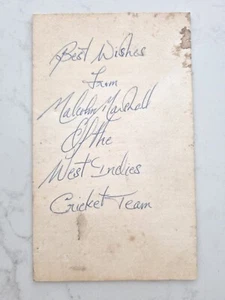 Best Wishes
from
Malcolm Marshall
Of the
West Indies
Cricket Team